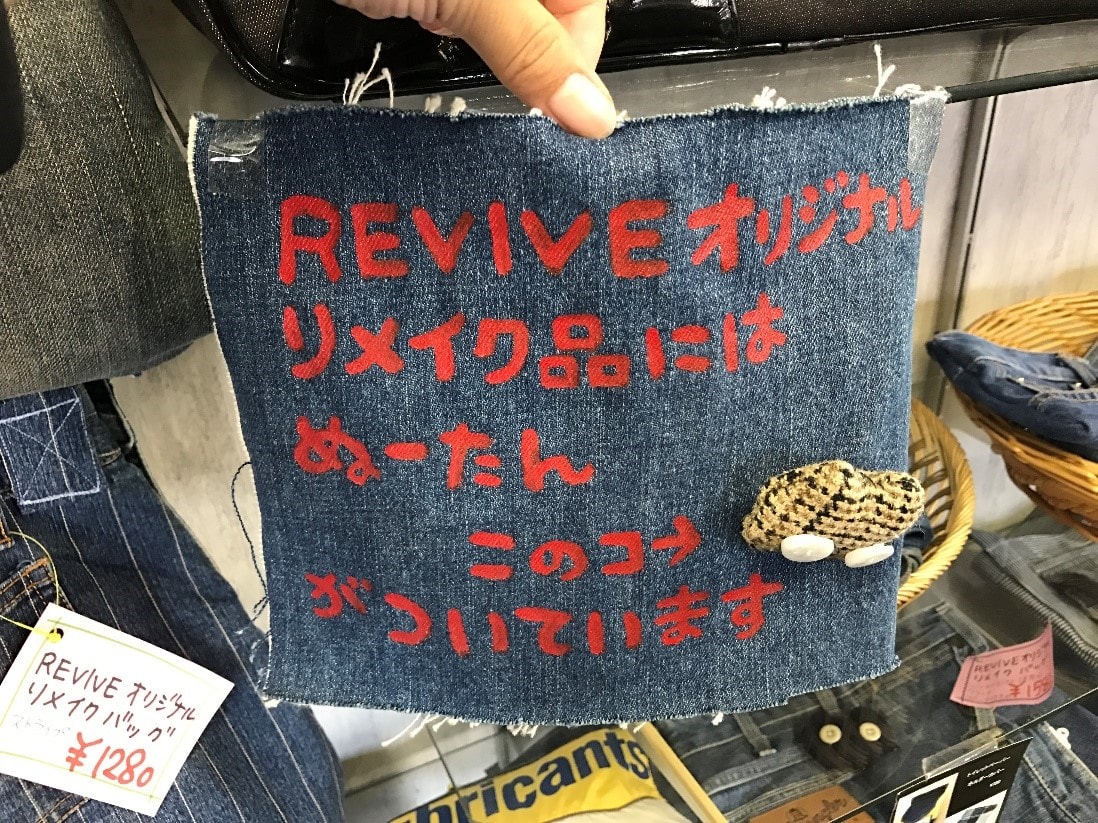 REVIVE オリジナル
リメイク品には
ぬーたん
このコ→
がついています
REVIVE オリジナル
リメイクバッグ
ストライプ
¥1280
REVIVE オリジナル
リメイク バッグ
bricants